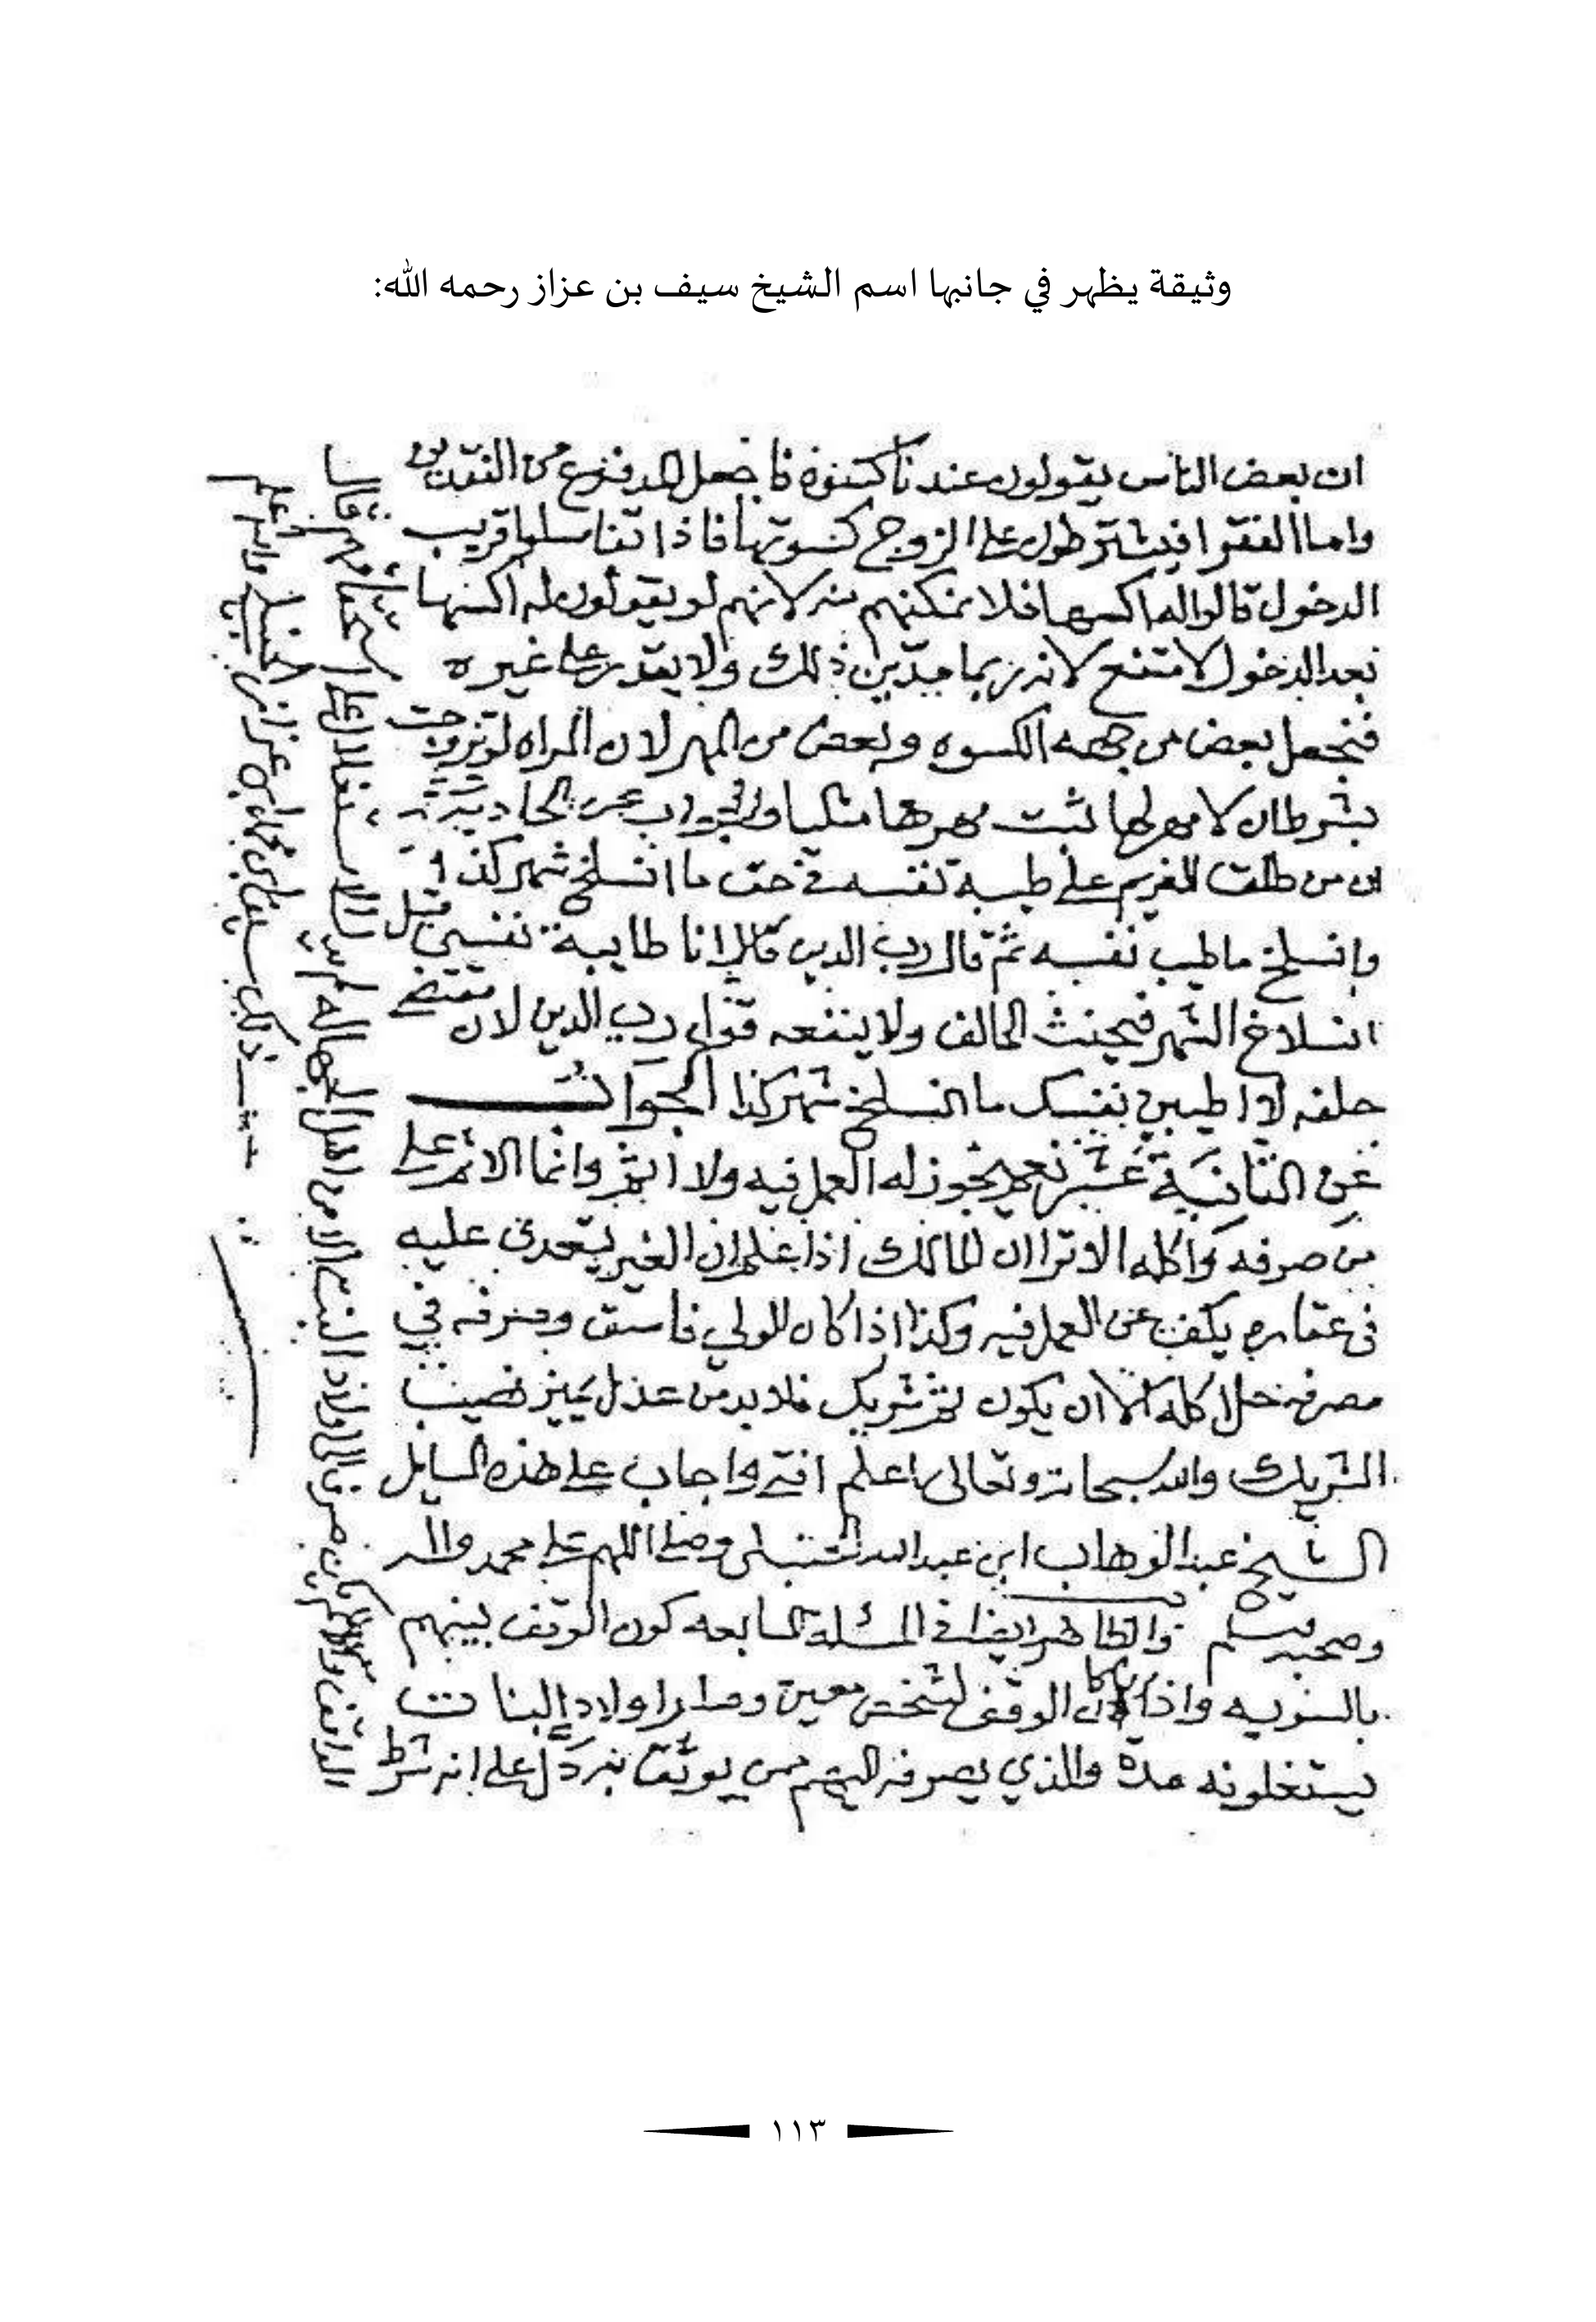 وثيقة يظهر في جانبها اسم الشيخ سيف بن عزاز رحمه الله:
ان بعض الناس يقولون عندنا كسوة فا جعل من النقدين
واما الفقرا فيشترطون على الزوج كسوتها فاذا تناسلوا قريب
الدخول قالوا له اكسها فلا يمكنهم منه لانهم لو يقولون له اكسها
بعد الدخول لامتنع لانه ربما ذلك ولا يقدر على غيره
فنجعل بعض من جهه الكسوه وبعض من المهر لان المراه لو تزوجت
بشرط ان لا مهر لها ثبت مهرها والجواب عن الحادية
ان من على طيبة نفسه في حق ما انسلخ شهر كذا
وانسلخ ما طيب نفسه ثم قال رب الدين قال انا طايبة نفسي قبل
انسلاخ الشهر فيحنث الحالف ولا ينفعه قول رب الدين لان مقتضى
حلفه لا اطيبن بنفسك ما انسلخ شهر كذا الجواب
عن الثانية عشر نعم يجوز له العمل فيه ولا اثم وانما الاثم على
من صرفه واكله الا ترا ان المالك اذا علم ان الغير يتعدى عليه
في عقاره يكف عن العمل فيه وكذا اذا كان للولي فاسق وصرفه في
مصرفه حل اكله الا ان يكون ثم شريك فلا بد من عدل يميز نصيب
الشريك والله سبحانه وتعالى اعلم افتى واجاب على هذه المسايل
الشيخ عبد الوهاب ابن عبد الله وصلى اللهم على محمد واله
وصحبه وسلم والظاهر ايضا في المسئلة السابعه كون الوقف بينهم
بالسويه واذا كان الوقف لشخص معين وصار اولاد البنات
يستغلونه مدة والذي يصرفه اليهم ممن يوثق به دل على انه شرط
الواقف صرف الى اولاد البنت الا من اهل الجهاله
قال ذلك سيف بن محمد بن عزاز الحنبلي والله اعلم
١١٣